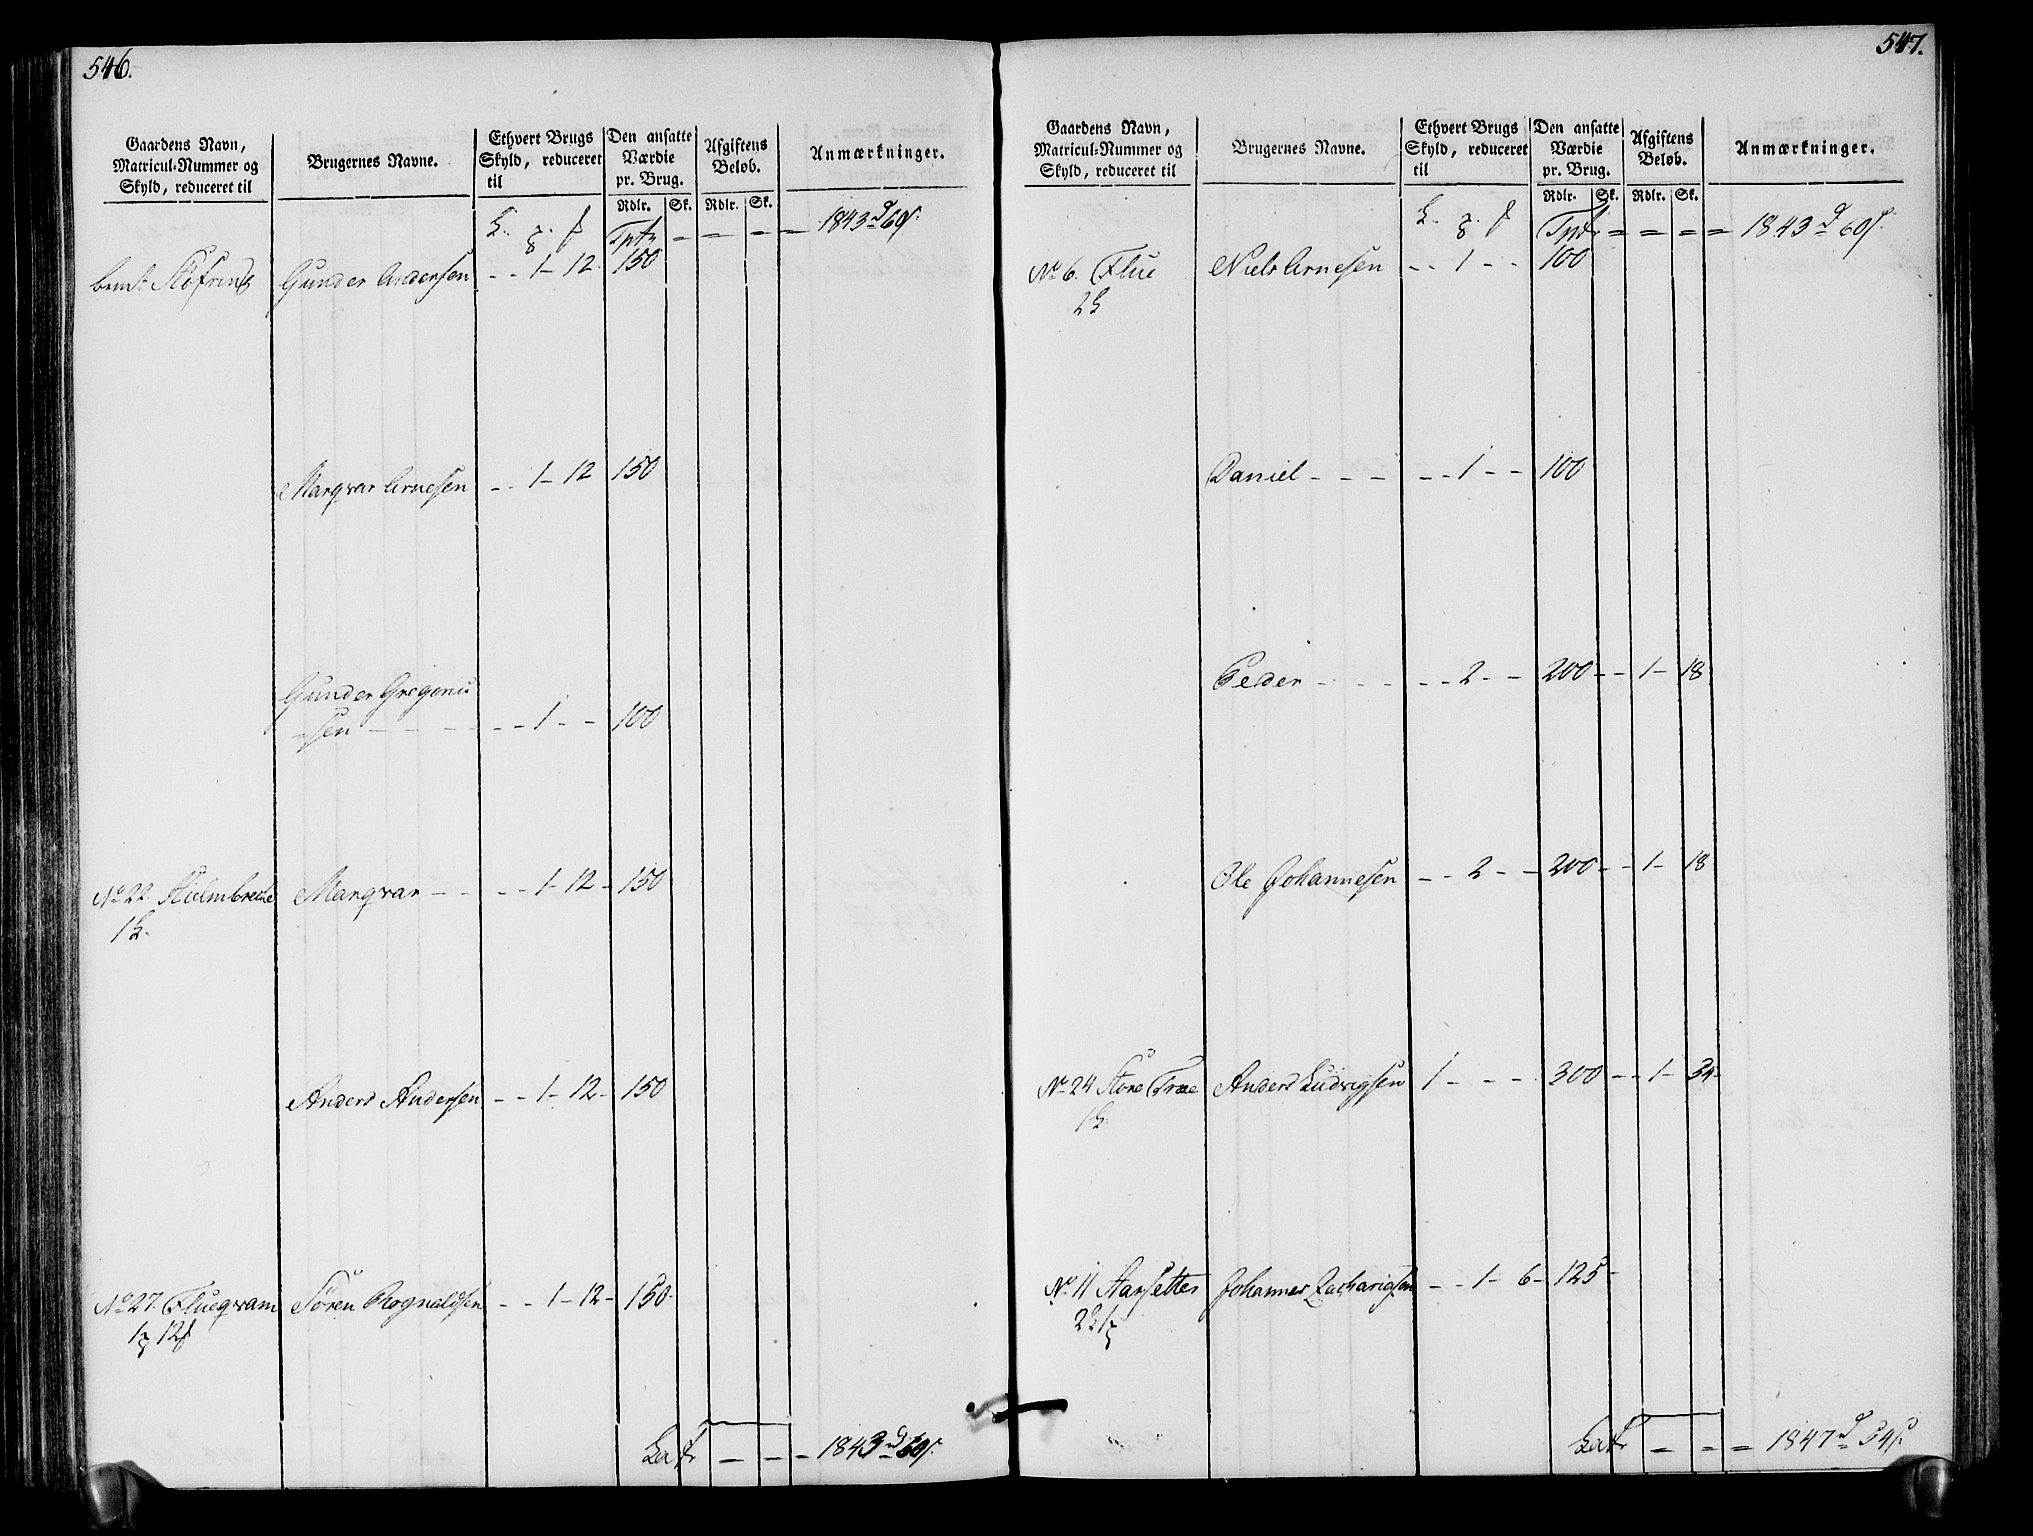 546.
Gaardens Navn, Matricul-Nummer og Skyld, reduceret til | Brugernes Navne. | Ethvert Brugs Skyld, reduceret til | Den ansatte Værdie pr. Brug. | Afgiftens Beløb. | Anmærkninger.
Rdlr. | Sk. | Rdlr. | Sk.
1843 d 60 s.
Gunder Andersen - - 1 - 12 150
Marqvar Arnesen - - 1 - 12 150
Gunder Gregoriu
-sen - - - - - - 1 - - 100
No 22. Holmbrecke Marqvar - - - - 1 - 12 - 150
Anders Andersen - - 1 - 12 - 150
No 27. Flueqvam Sören Rognaldsen - - 1 - 12 - 150
Latr - - - 1843 d 60 s.
547.
Gaardens Navn, Matricul-Nummer og Skyld, reduceret til | Brugernes Navne. | Ethvert Brugs Skyld, reduceret til | Den ansatte Værdie pr. Brug. | Afgiftens Beløb. | Anmærkninger.
Rdlr. | Sk. | Rdlr. | Sk.
1843 d 60 s.
No 6. Flue Niels Arnesen - - 1 - - 100
Daniel - - - - - 1 - - 100
Peder - - - - - 2 - - 200 - - 1 - 18
Ole Johannesen - - 2 - - 200 - - 1 - 18
No 24 Store Træe Anders Ludvigsen 1 - - - 300 - - 1 - 34
No 11 Aarsetter Johannes Zachariesen - - 1 - 6 - 125 -
Latr - - - 1847 d 34 s.